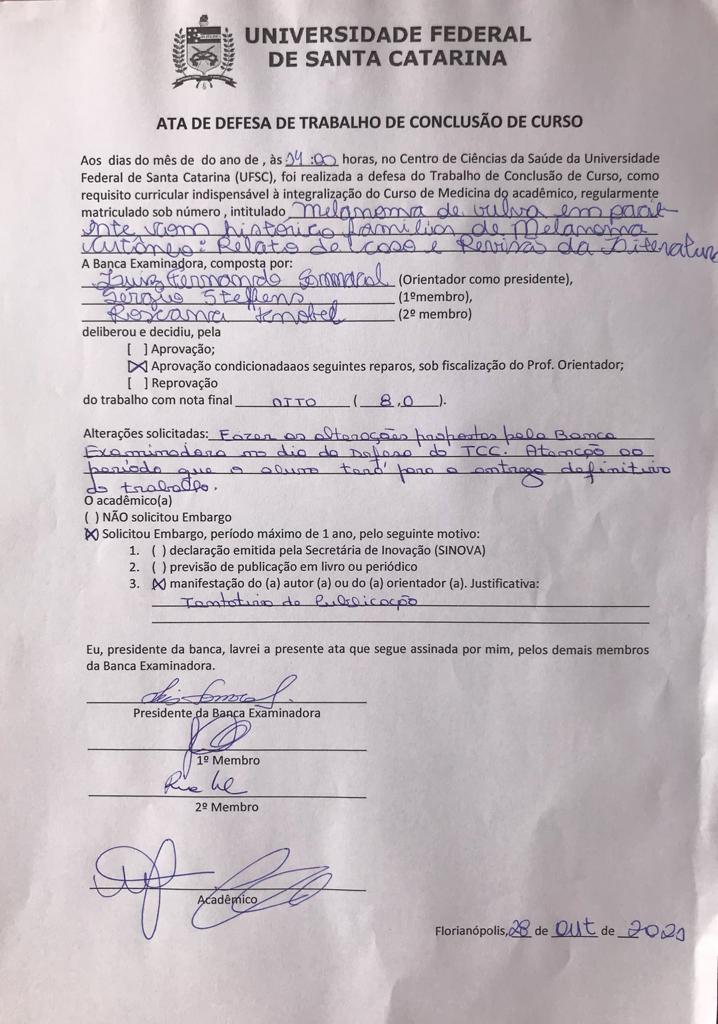 UNIVERSIDADE FEDERAL
DE SANTA CATARINA
ATA DE DEFESA DE TRABALHO DE CONCLUSÃO DE CURSO
Aos dias do mês de do ano de , às 14:00 horas, no Centro de Ciências da Saúde da Universidade
Federal de Santa Catarina (UFSC), foi realizada a defesa do Trabalho de Conclusão de Curso, como
requisito curricular indispensável à integralização do Curso de Medicina do acadêmico, regularmente
matriculado sob número , intitulado Melanoma de vulva em paci-
ente com histórico familiar de Melanoma
cutâneo: Relato de caso e Revisão da Literatura
A Banca Examinadora, composta por:
Luiz Fernando Sommacal (Orientador como presidente),
Sérgio Steffens (1ºmembro),
Roxana Knobel (2º membro)
deliberou e decidiu, pela
[ ] Aprovação;
[X] Aprovação condicionadaaos seguintes reparos, sob fiscalização do Prof. Orientador;
[ ] Reprovação
do trabalho com nota final OITO ( 8,0 ).
Alterações solicitadas: Fazer as alterações propostas pela Banca
Examinadora no dia da Defesa do TCC. Atenção ao
período que o aluno terá para a entrega definitiva
do trabalho.
O acadêmico(a)
( ) NÃO solicitou Embargo
(X) Solicitou Embargo, período máximo de 1 ano, pelo seguinte motivo:
1. ( ) declaração emitida pela Secretária de Inovação (SINOVA)
2. ( ) previsão de publicação em livro ou periódico
3. (X) manifestação do (a) autor (a) ou do (a) orientador (a). Justificativa:
Tentativa de Publicação
Eu, presidente da banca, lavrei a presente ata que segue assinada por mim, pelos demais membros
da Banca Examinadora.
Presidente da Banca Examinadora
1º Membro
2º Membro
Acadêmico
Florianópolis, 28 de out de